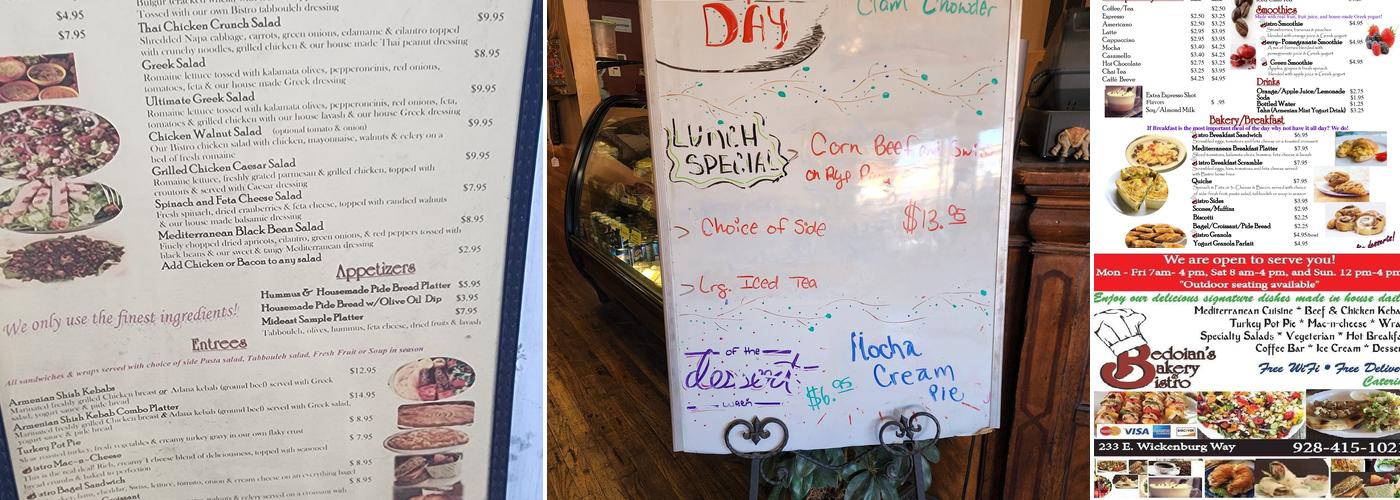 $4.95
Bulgur
Tossed with our own Bistro tabbouleh dressing
$7.95
Thai Chicken Crunch Salad
$9.95
Shredded Napa cabbage, carrots, green onions, edamame & cilantro topped
with crunchy noodles, grilled chicken & our house made Thai peanut dressing
Greek Salad
$8.95
Romaine lettuce tossed with kalamata olives, pepperoncinis, red onions,
tomatoes, feta & our house made Greek dressing
Ultimate Greek Salad
$9.95
Romaine lettuce tossed with kalamata olives, pepperoncinis, red onions, feta,
tomatoes & grilled chicken with our house lavash & our house Greek dressing
Chicken Walnut Salad (optional tomato & onion)
$9.95
Our Bistro chicken salad with chicken, mayonnaise, walnuts & celery on a
bed of fresh romaine
Grilled Chicken Caesar Salad
$9.95
Romaine lettuce, freshly grated parmesan & grilled chicken, topped with
croutons & served with Caesar dressing
Spinach and Feta Cheese Salad
$7.95
Fresh spinach, dried cranberries & feta cheese, topped with candied walnuts
& our house made balsamic dressing
Mediterranean Black Bean Salad
$8.95
Finely chopped dried apricots, cilantro, green onions, & red peppers tossed with
black beans & our sweet & tangy Mediterranean dressing
Add Chicken or Bacon to any salad
$2.95
Appetizers
Hummus & Housemade Pide Bread Platter $5.95
Housemade Pide Bread w/Olive Oil Dip $3.95
Mideast Sample Platter $7.95
Tabbouleh, olives, hummus, feta cheese, dried fruits & lavash
We only use the finest ingredients!
Entrees
All sandwiches & wraps served with choice of side Pasta salad, Tabbouleh salad, Fresh Fruit or Soup in season
Armenian Shish Kebabs $12.95
Marinated freshly grilled Chicken breast or Adana kebab (ground beef) served with Greek
salad, yogurt sauce & pide bread
Armenian Shish Kebab Combo Platter $14.95
Marinated freshly grilled Chicken breast & Adana kebab (ground beef) served with Greek salad,
yogurt sauce & pide bread
Turkey Pot Pie $ 8.95
Slow roasted turkey, fresh vegetables & creamy turkey gravy in our own flaky crust
Bistro Mac-n-Cheese $ 7.95
This is the real deal! Rich, creamy 4 cheese blend of deliciousness, topped with seasoned
bread crumbs & baked to perfection
Bistro Bagel Sandwich $ 8.95
ham, cheddar, Swiss, lettuce, tomato, onion & cream cheese on an everything bagel
Croissant $ 8.95
walnuts & celery served on a croissant with
DAY
Clam Chowder
LUNCH
SPECIAL
Corn Beef and Swiss
on Rye
> Choice of Side
$13.95
> Lrg. Iced Tea
of the
dessert
week
$6.95
Mocha
Cream
Pie
Coffee/Tea $2.50
Espresso $2.50 $3.25
Americano $2.50 $3.25
Latte $2.95 $3.95
Cappuccino $2.95 $3.95
Mocha $3.40 $4.25
Caramello $3.40 $4.25
Hot Chocolate $2.75 $3.25
Chai Tea $3.25 $3.95
Caffé Breve $4.25 $4.95
Extra Espresso Shot
Flavors $ .95
Soy/Almond Milk
Smoothies
Made with real fruit, fruit juice, and house-made Greek yogurt!
Bistro Smoothie $4.95
Strawberries, bananas & peaches
blended with orange juice & Greek yogurt
Berry-Pomegranate Smoothie $4.95
A mix of berries blended with
pomegranate juice & Greek yogurt
Green Smoothie $4.95
Apples, grapes & fresh spinach
blended with apple juice & Greek yogurt
Drinks
Orange/Apple Juice/Lemonade $2.75
Soda $1.95
Bottled Water $1.25
Tahn (Armenian Mint Yogurt Drink) $3.25
Bakery/Breakfast
If Breakfast is the most important meal of the day why not have it all day? We do!
Bistro Breakfast Sandwich $6.95
Scrambled eggs, tomatoes and feta cheese on a toasted croissant
Mediterranean Breakfast Platter $7.95
Sliced tomatoes, kalamata olives, hummus, feta cheese & lavash
Bistro Breakfast Scramble $7.95
Scrambled eggs, ham, tomatoes and feta cheese served
with Bistro home fries
Quiche $7.95
Bistro Sides $3.95
Scones/Muffins $2.95
Biscotti $2.25
Bagel/Croissant/Pide Bread $2.25
Bistro Granola $4.95/bowl
Yogurt Granola Parfait $4.95
desserts!
We are open to serve you!
Mon - Fri 7am- 4 pm, Sat 8 am-4 pm, and Sun. 12 pm-4 pm
"Outdoor seating available"
Enjoy our delicious signature dishes made in house daily
Mediterranean Cuisine * Beef & Chicken Keba
Turkey Pot Pie * Mac-n-cheese * Wra
Specialty Salads * Vegetarian * Hot Breakfa
Coffee Bar * Ice Cream * Desser
Bedoian's
Bakery
Bistro
Free WiFi • Free Deli
Cateri
VISA
DISCOVER
233 E. Wickenburg Way
928-415-102